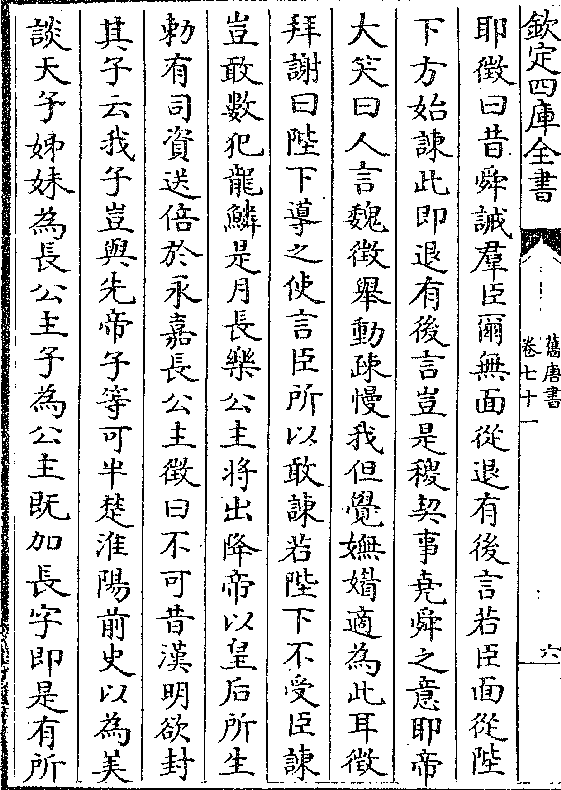 欽定四庫全書
舊唐書
卷七十一
六
耶徵曰昔舜誡羣臣爾無面從退有後言若臣面從陛
下方始諫此即退有後言豈是稷契事堯舜之意耶帝
大笑曰人言魏徵舉動疎慢我但覺嫵媚適為此耳徵
拜謝曰陛下導之使言臣所以敢諫若陛下不受臣諫
豈敢數犯龍鱗是月長樂公主將出降帝以皇后所生
勅有司資送倍於永嘉長公主徵曰不可昔漢明欲封
其子云我子豈與先帝子等可半楚淮陽前史以為美
談天子姊妹為長公主子為公主既加長字即是有所